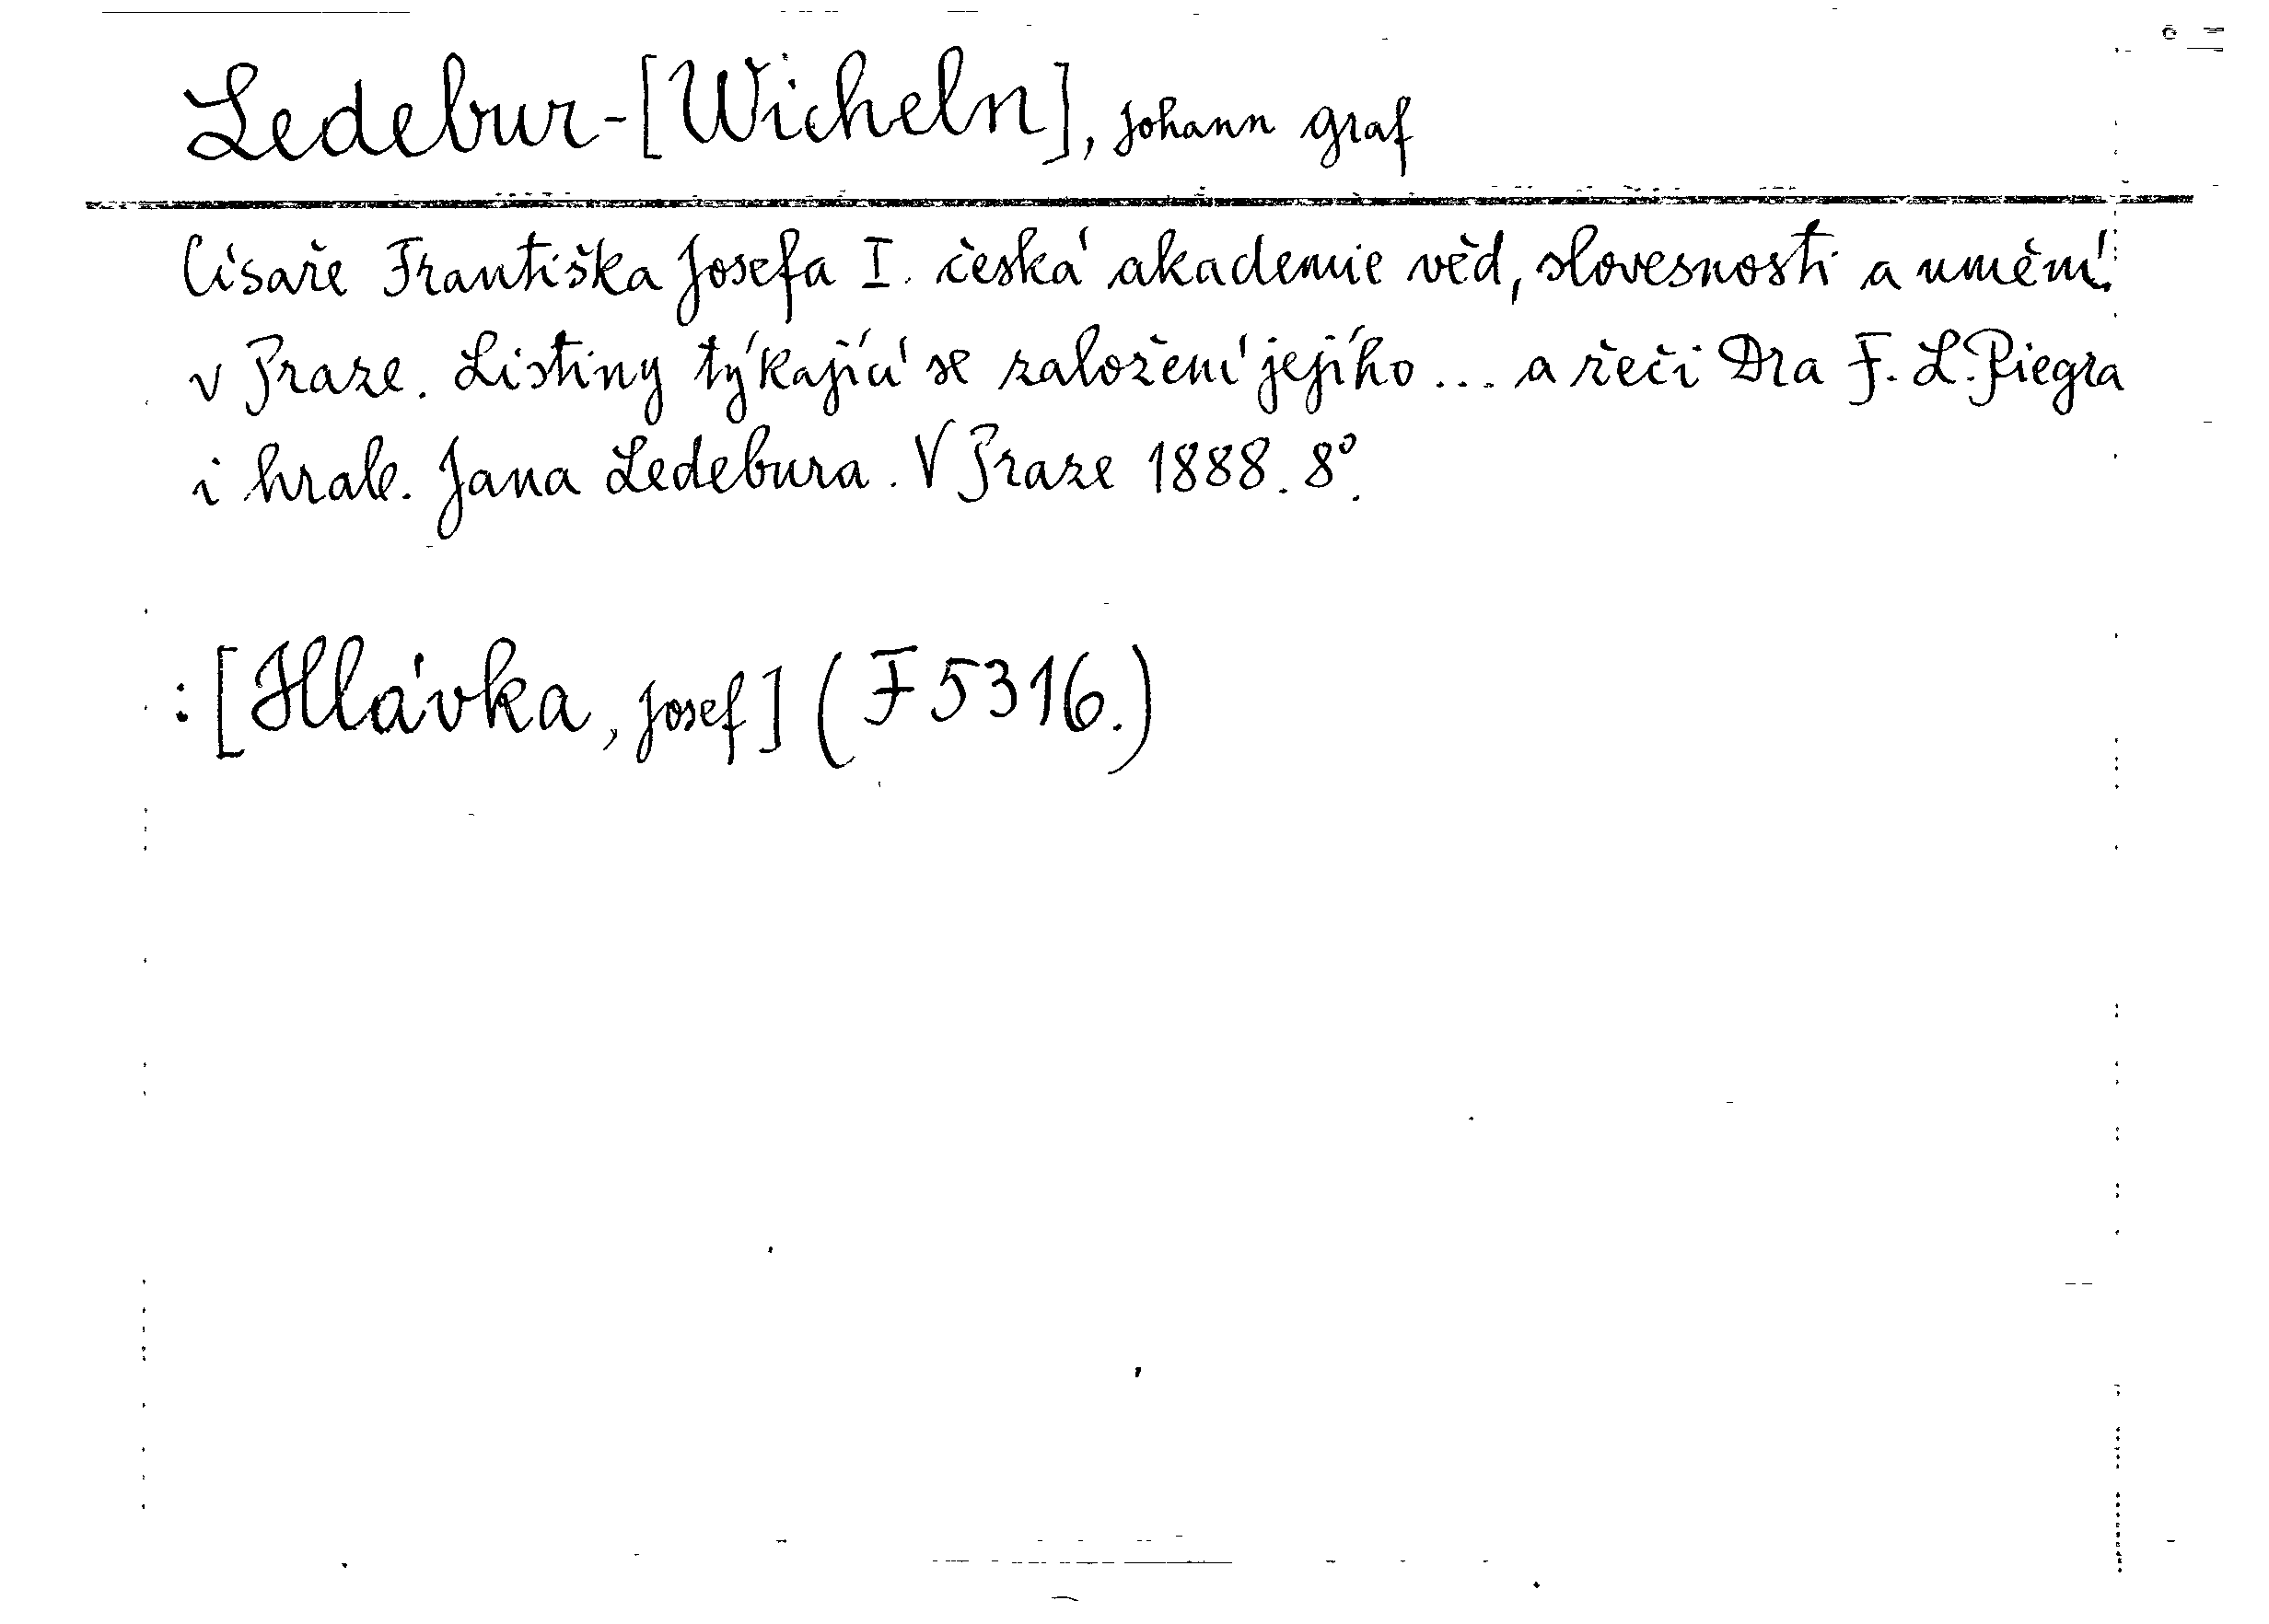 Ledebur-[Wicheln], Johann Graf
Císaře Františka Josefa I. česká akademie věd, slovesnosti a umění
v Praze. Listiny týkající se založení jejího ... a řeči Dra F. L. Riegra
i hrab. Jana Ledebura. V Praze 1888. 8°.
:[Hlávka, Josef] (F 5316.)